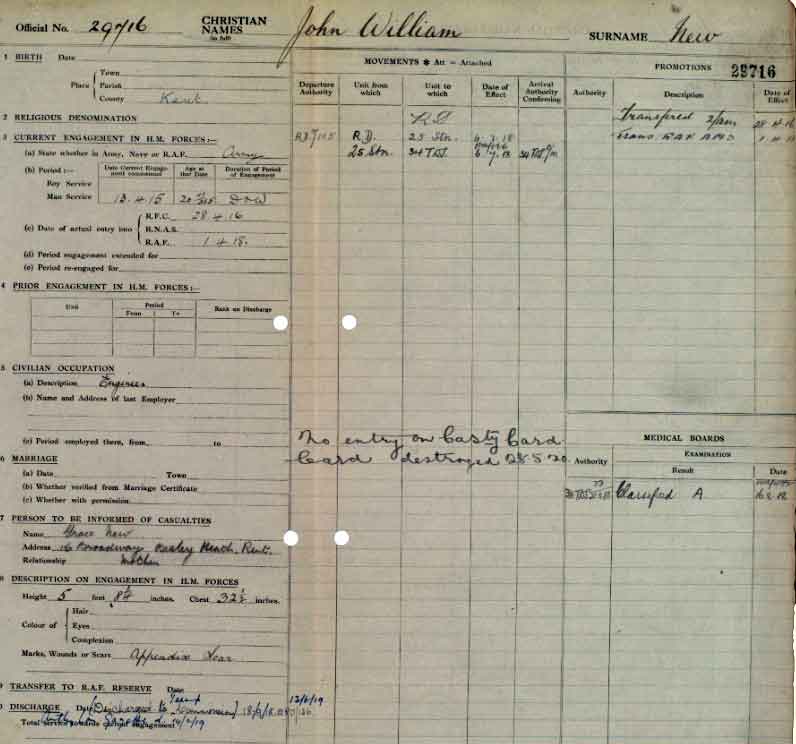 Official No. 29716 CHRISTIAN NAMES (in full) John William SURNAME New
1 BIRTH Date
Place Town
Parish
County Kent
2 RELIGIOUS DENOMINATION
3 CURRENT ENGAGEMENT IN H.M. FORCES:—
(a) State whether in Army, Navy or R.A.F. Army
(b) Period:— Date Current Engagement commenced Age at that Date Duration of Period of Engagement
Boy Service
Man Service 13.4.15 D of W
(c) Date of actual entry into R.F.C. 28.4.16
R.N.A.S.
R.A.F. 1.4.18.
(d) Period engagement extended for
(e) Period re-engaged for
4 PRIOR ENGAGEMENT IN H.M. FORCES:—
Unit Period Rank on Discharge
From To
5 CIVILIAN OCCUPATION
(a) Description Engineer
(b) Name and Address of last Employer
(c) Period employed there, from to
6 MARRIAGE
(a) Date Town
(b) Whether verified from Marriage Certificate
(c) Whether with permission
7 PERSON TO BE INFORMED OF CASUALTIES
Name Grace New
Address 16 Broadway Bexley Heath, Kent.
Relationship Mother
8 DESCRIPTION ON ENGAGEMENT IN H.M. FORCES
Height 5 feet 8¼ inches. Chest 32½ inches.
Colour of Hair
Eyes
Complexion
Marks, Wounds or Scars Appendix Scar
9 TRANSFER TO R.A.F. RESERVE Date
DISCHARGE Date (Discharged to
Total service towards engagement
MOVEMENTS * Att = Attached
Departure Authority Unit from which Unit to which Date of Effect Arrival Authority Confirming
R.D.
R.D. 25 Stn.
25 Stn. 34 TDS.
No entry on Casty Card
Card destroyed 28.5.20.
PROMOTIONS 29716
Authority Description Date of Effect
Transfered 2/am 28.4.16
Trans RAF 1.4.18
MEDICAL BOARDS
EXAMINATION
Authority Result Date
Classified A